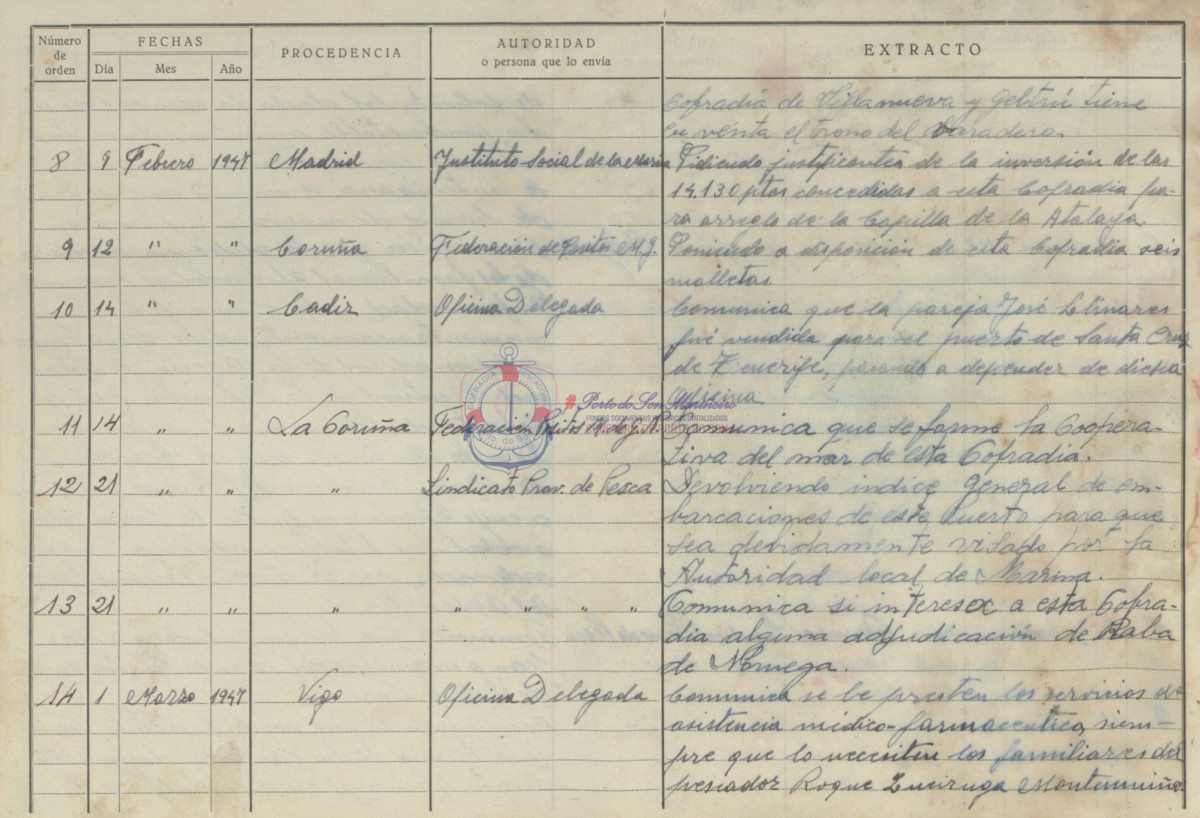 Número de orden FECHAS PROCEDENCIA AUTORIDAD o persona que lo envía EXTRACTO
Día Mes Año
Cofradía de Villanueva y Geltrú tiene
en venta el trono del Varadero.
8 9 Febrero 1947 Madrid Instituto Social de la Marina Pidiendo justificantes de la inversión de las
14.130 ptas concedidas a esta Cofradía pa-
ra arreglo de la Capilla de la Atalaya.
9 12 " " Coruña Federación de Pósitos M. G. Poniendo a disposición de esta Cofradía seis
malletas.
10 14 " " Cadiz Oficina Delegada Comunica que la pareja José Llinares
fué vendida para el puerto de Santa Cruz
de Tenerife, pasando a depender de dicha
Oficina.
11 14 " " La Coruña Federación Pósitos M. de G. Comunica que se forme la Coopera-
tiva del mar de esta Cofradía.
12 21 " " " Sindicato Prov. de Pesca Devolviendo indice general de em-
barcaciones de este puerto para que
sea devidamente visado por la
Autoridad local de Marina.
13 21 " " " " " " " Comunica si interesa a esta Cofra-
dia alguna adjudicación de Raba
de Noruega.
14 1 Marzo 1947 Vigo Oficina Delegada Comunica se le presten los servicios de
asistencia médico-farmaceutica, siem-
pre que lo necesiten los familiares del
pescador Roque Zueiruga Montemuiño.
COFRADIA
Porto do Son
#Porto do Son Mariñeiro
FONDOS DOCUMENTAIS HISTÓRICOS DIXITALIZADOS